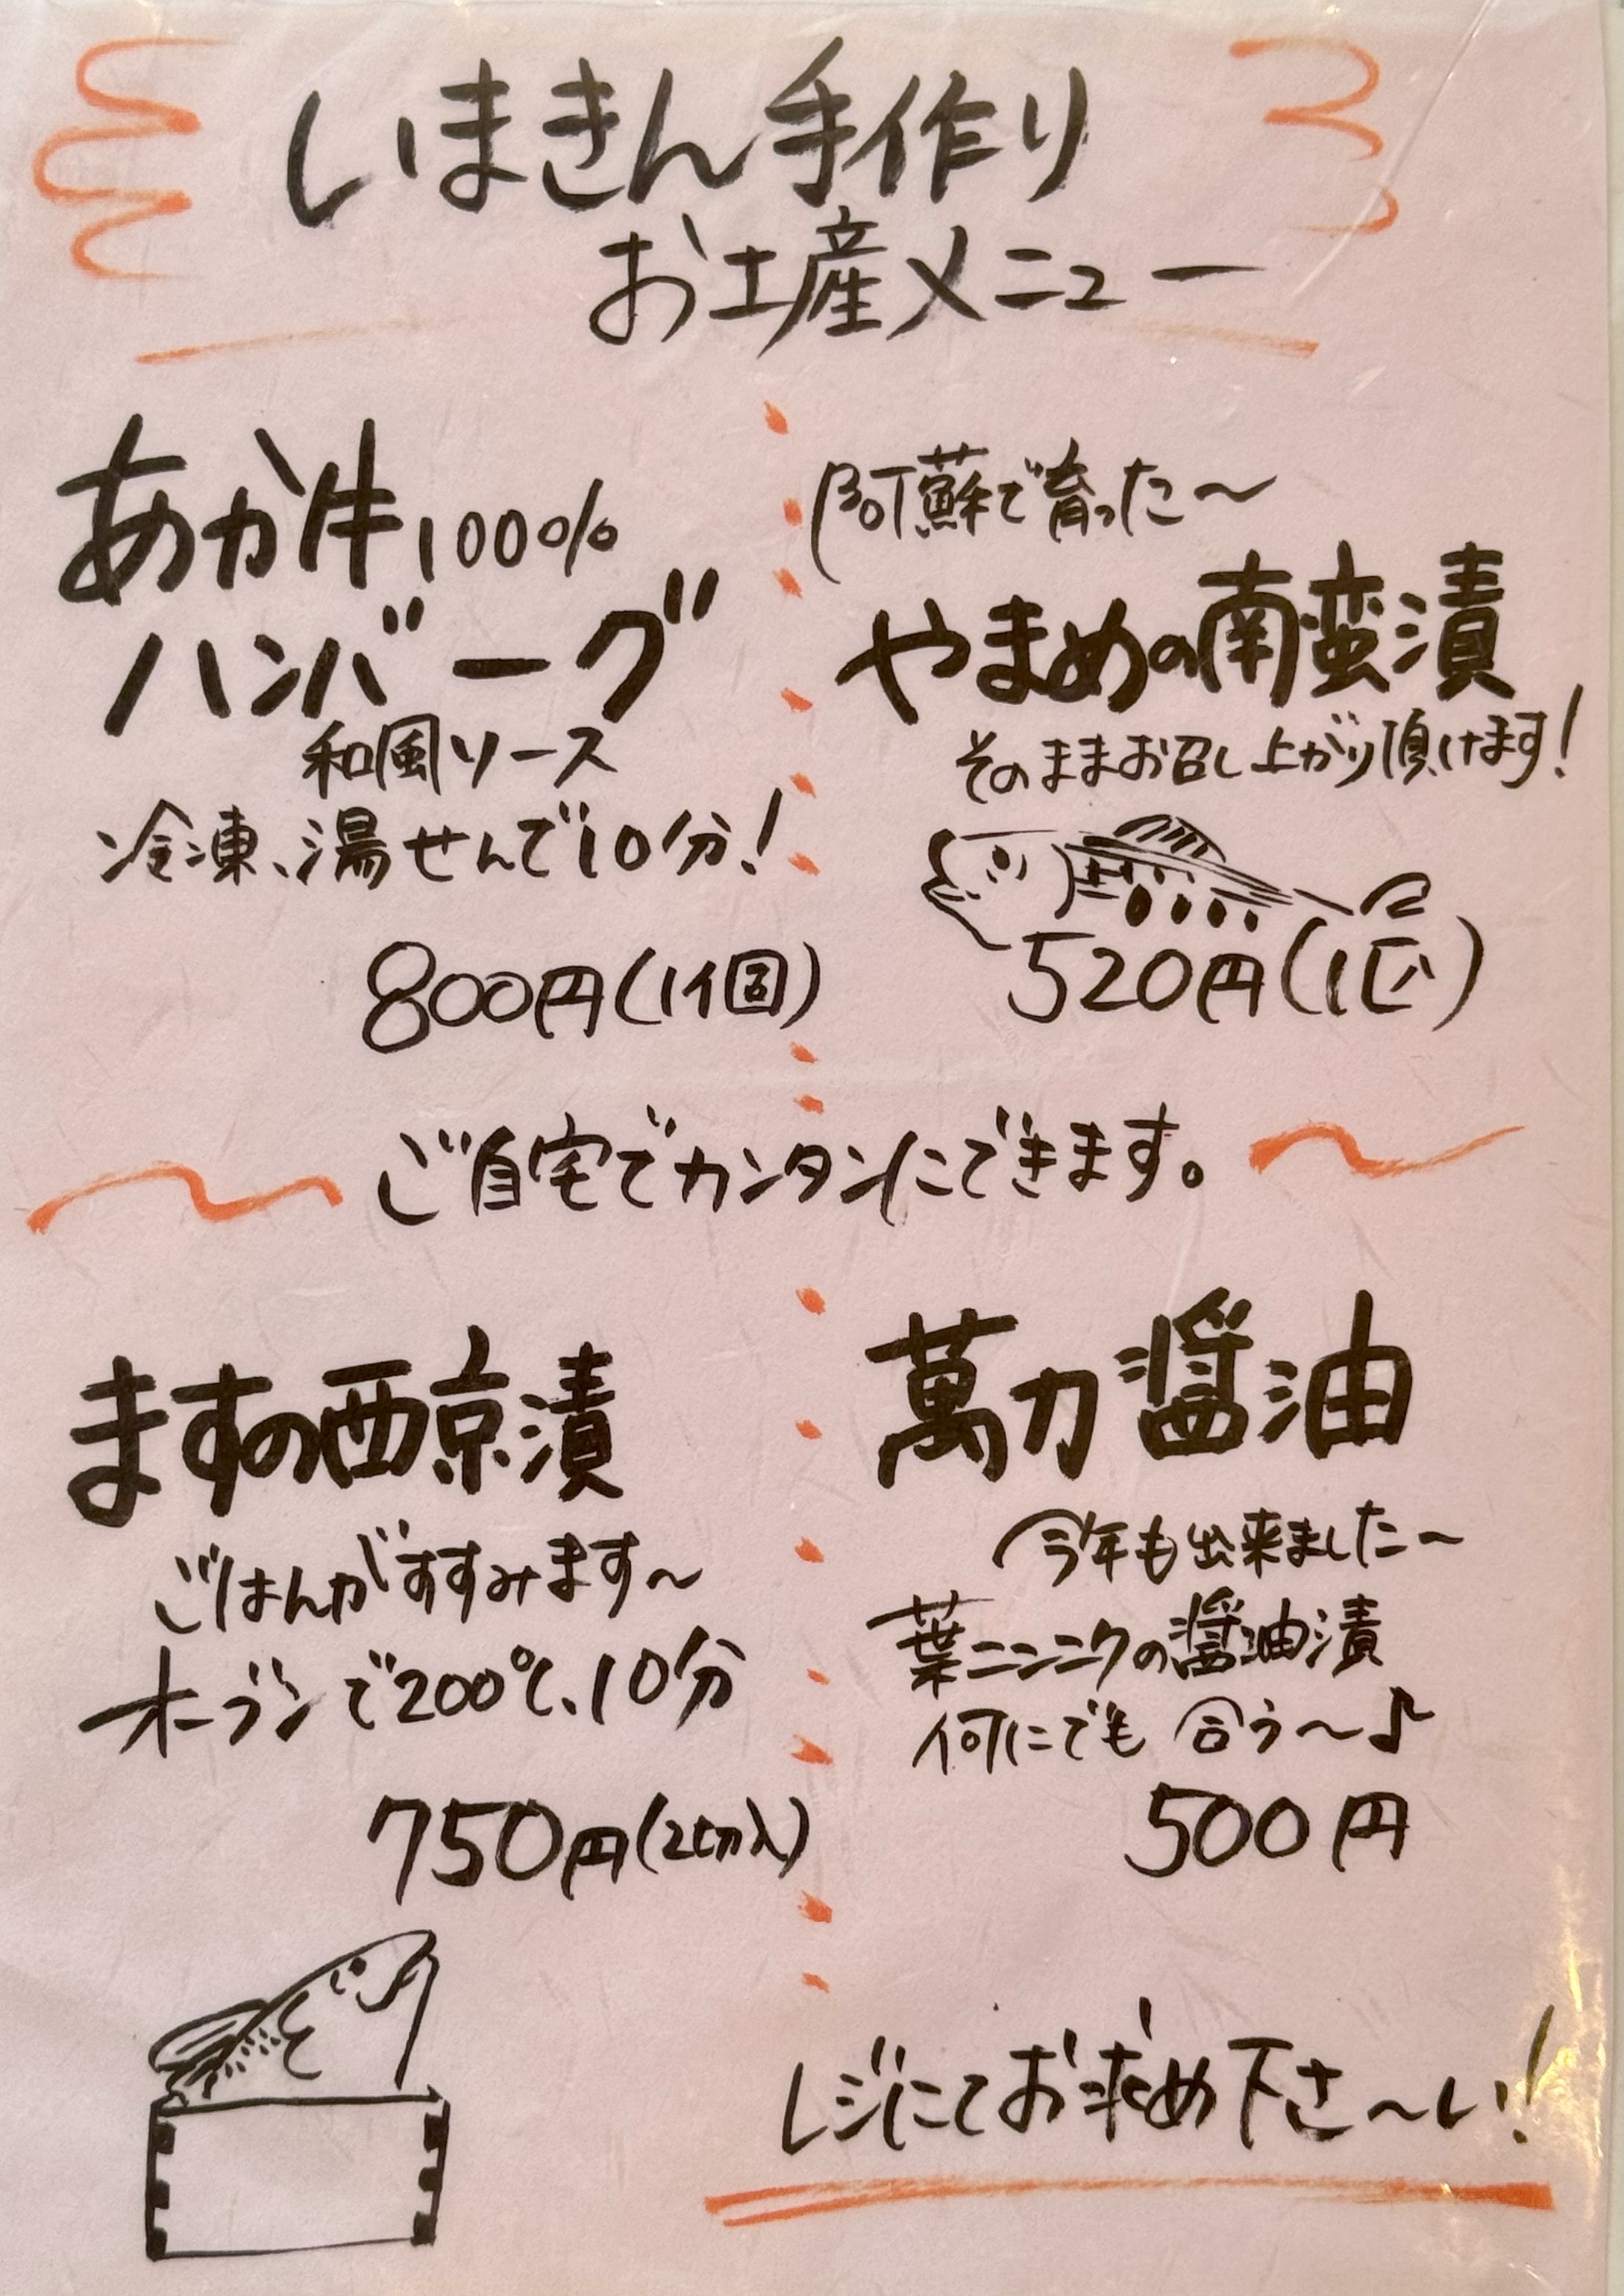 いまきん手作り
お土産メニュー
あか牛100%
ハンバーグ
和風ソース
冷凍、湯せんで10分!
800円(1個)
阿蘇で育った〜
やまめの南蛮漬
そのままお召し上がり頂けます!
520円(1匹)
ご自宅でカンタンにできます。
ますの西京漬
ごはんがすすみます〜
オーブンで200℃、10分
750円(2切入)
萬力醤油
今年も出来ました〜
葉ニンニクの醤油漬
何にでも合う〜♪
500円
レジにてお求め下さ〜い!